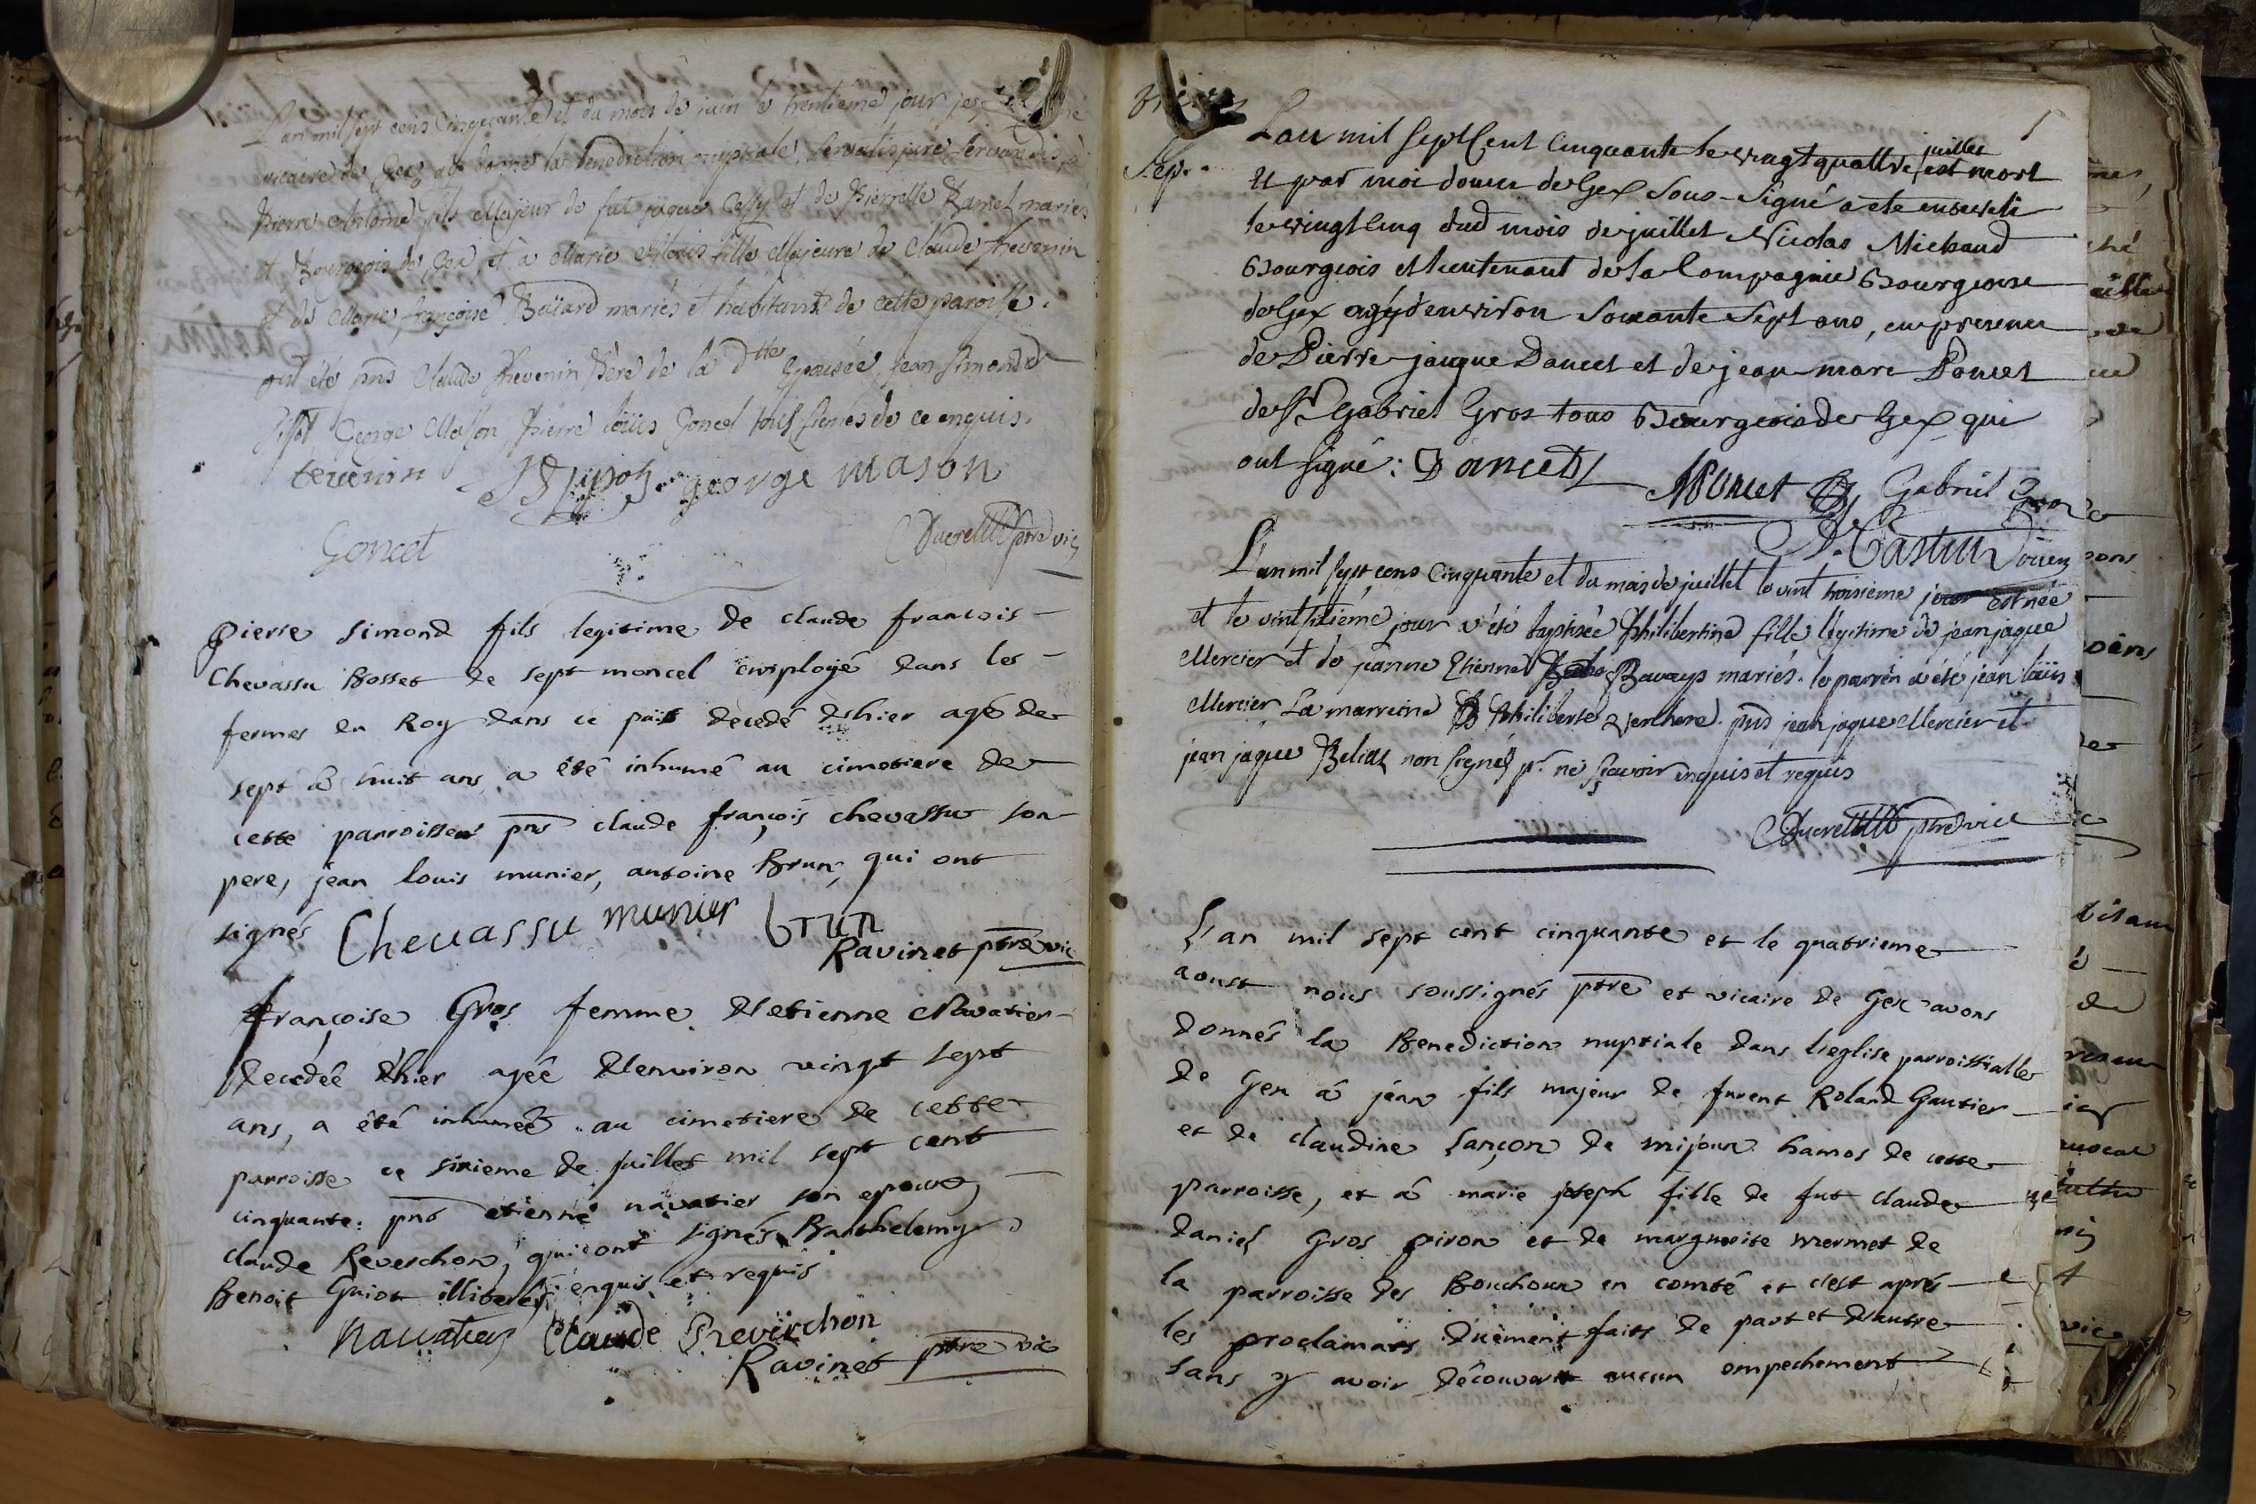 L'an mil sept cens Cinquante et du mois de juin le trentieme jour je
vicaire de Gex ay donné la benediction nuptiale, servatis jure servandis, à
Pierre Antoine fils Majeur de fut jaques et de Pierrette Ramel mariés
et Bourgeois de Gex, et à Marie fille Majeure de Claude thevenin
et de Marie françoise Baïard mariés et habitants de cette paroisse.
ont été pns Claude thevenin Père de la dtte Epousée, jean
George Masson Pierre loüis Goncet tous signés de ce enquis.
tevenin george mason
Goncet Ducret ptre vic
pierre simond fils legitime de claude francois
Chevassu Bosset de sept moncel employé dans les
fermes du Roy dans ce païs decedé d'hier agé de
sept à huit ans a été inhumé au cimetiere de
cette parroisse pns claude françois chevassu son
pere, jean louis munier, antoine Brun, qui ont
signés Chevassu munier brun
Ravinet ptre vic
françoise Gros femme d'etienne Navatier
decedée d'hier agée d'environ vingt sept
ans, a été inhumée au cimetiere de cette
parroisse ce sixieme de juillet mil sept cent
cinquante. pns etienne navatier son epoux,
claude Reverchon, qui ont signés, Barthelemy
Benoit Guiot illiterés enquis et requis
Navatier Claude Reverchon
Ravinet ptre vic
Sep.
Lan mil Sept Cent Cinquante le vingt quattre juillet est mort
et par moi doien de Gex Sous-Signé a ete enseveli
le vingt Cinq dud mois de juillet Nicolas Michaud
Bourgeois et lieutenant de la Compagnie Bourgeoise
de Gex agé d'environ Soixante Sept ans, en presence
de Pierre jacque Dancet et de jean marc Poncet
de Sr Gabriel Gros tous Bourgeois de Gex qui
ont signé: Dancet Poncet Gabriel Gros
Castin Doien
L'an mil sept cens Cinquante et du mois de juillet le vint troisieme jour est née
et le vint sixiéme jour a été baptisée Philibertine fille légitime de jean jaque
Mercier et de jeanne Etienne Bavays mariés. le parrein a été jean loüis
Mercier La marreine Philiberte Verchere. pns jean jaque Mercier et
jean jaque Belias non signés pr. ne sçavoir enquis et requis
Ducret ptre vice
L'an mil sept cent cinquante et le quatrieme
aoust nous soussignés ptre et vicaire de Gex avons
donnés la Benediction nuptiale dans l'eglise parroissialle
de Gex à jean fils majeur de furent Roland Gautier
et de claudine Lançon de mijoux hamos de cette
parroisse, et à marie joseph fille de fut claude
daniel Gros piron et de marguerite mermet de
la parroisse des Bouchoux en comté et c'est aprés
les proclamats düement faits de part et d'autre
sans y avoir découvert aucun empechement